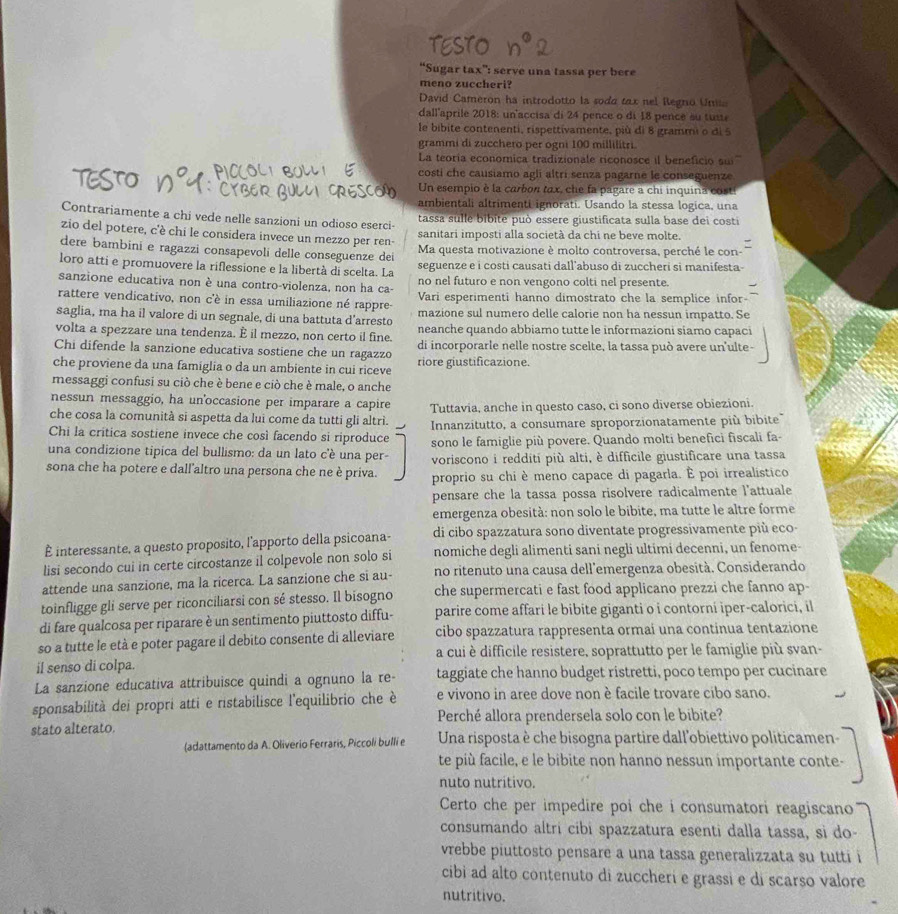 TESTO n° 1: PICCOLI BULLI E
CYBER BULLI CRESCON
Contrariamente a chi vede nelle sanzioni un odioso eserci-
zio del potere, c'è chi le considera invece un mezzo per ren-
dere bambini e ragazzi consapevoli delle conseguenze dei
loro atti e promuovere la riflessione e la libertà di scelta. La
sanzione educativa non è una contro-violenza, non ha ca-
rattere vendicativo, non c'è in essa umiliazione né rappre-
saglia, ma ha il valore di un segnale, di una battuta d'arresto
volta a spezzare una tendenza. È il mezzo, non certo il fine.
Chi difende la sanzione educativa sostiene che un ragazzo
che proviene da una famiglia o da un ambiente in cui riceve
messaggi confusi su ciò che è bene e ciò che è male, o anche
nessun messaggio, ha un'occasione per imparare a capire
che cosa la comunità si aspetta da lui come da tutti gli altri.
Chi la critica sostiene invece che così facendo si riproduce
una condizione tipica del bullismo: da un lato c'è una per-
sona che ha potere e dall'altro una persona che ne è priva.
È interessante, a questo proposito, l'apporto della psicoana-
lisi secondo cui in certe circostanze il colpevole non solo si
attende una sanzione, ma la ricerca. La sanzione che si au-
toinfligge gli serve per riconciliarsi con sé stesso. Il bisogno
di fare qualcosa per riparare è un sentimento piuttosto diffu-
so a tutte le età e poter pagare il debito consente di alleviare
il senso di colpa.
La sanzione educativa attribuisce quindi a ognuno la re-
sponsabilità dei propri atti e ristabilisce l'equilibrio che è
stato alterato.
(adattamento da A. Oliverio Ferraris, Piccoli bulli e
TESTO n° 2
"Sugar tax": serve una tassa per bere
meno zuccheri?
David Cameron ha introdotto la soda tax nel Regno Unito
dall'aprile 2018: un'accisa di 24 pence o di 18 pence su tutte
le bibite contenenti, rispettivamente, più di 8 grammi o di 5
grammi di zucchero per ogni 100 millilitri.
La teoria economica tradizionale riconosce il beneficio sui
costi che causiamo agli altri senza pagarne le conseguenze.
Un esempio è la carbon tax, che fa pagare a chi inquina costi
ambientali altrimenti ignorati. Usando la stessa logica, una
tassa sulle bibite può essere giustificata sulla base dei costi
sanitari imposti alla società da chi ne beve molte.
Ma questa motivazione è molto controversa, perché le con-
seguenze e i costi causati dall'abuso di zuccheri si manifesta-
no nel futuro e non vengono colti nel presente.
Vari esperimenti hanno dimostrato che la semplice infor-
mazione sul numero delle calorie non ha nessun impatto. Se
neanche quando abbiamo tutte le informazioni siamo capaci
di incorporarle nelle nostre scelte, la tassa può avere un'ulte-
riore giustificazione.
Tuttavia, anche in questo caso, ci sono diverse obiezioni.
Innanzitutto, a consumare sproporzionatamente più bibite
sono le famiglie più povere. Quando molti benefici fiscali fa-
voriscono i redditi più alti, è difficile giustificare una tassa
proprio su chi è meno capace di pagarla. È poi irrealistico
pensare che la tassa possa risolvere radicalmente l'attuale
emergenza obesità: non solo le bibite, ma tutte le altre forme
di cibo spazzatura sono diventate progressivamente più eco-
nomiche degli alimenti sani negli ultimi decenni, un fenome-
no ritenuto una causa dell'emergenza obesità. Considerando
che supermercati e fast food applicano prezzi che fanno ap-
parire come affari le bibite giganti o i contorni iper-calorici, il
cibo spazzatura rappresenta ormai una continua tentazione
a cui è difficile resistere, soprattutto per le famiglie più svan-
taggiate che hanno budget ristretti, poco tempo per cucinare
e vivono in aree dove non è facile trovare cibo sano.
Perché allora prendersela solo con le bibite?
Una risposta è che bisogna partire dall'obiettivo politicamen-
te più facile, e le bibite non hanno nessun importante conte-
nuto nutritivo.
Certo che per impedire poi che i consumatori reagiscano
consumando altri cibi spazzatura esenti dalla tassa, si do-
vrebbe piuttosto pensare a una tassa generalizzata su tutti i
cibi ad alto contenuto di zuccheri e grassi e di scarso valore
nutritivo.